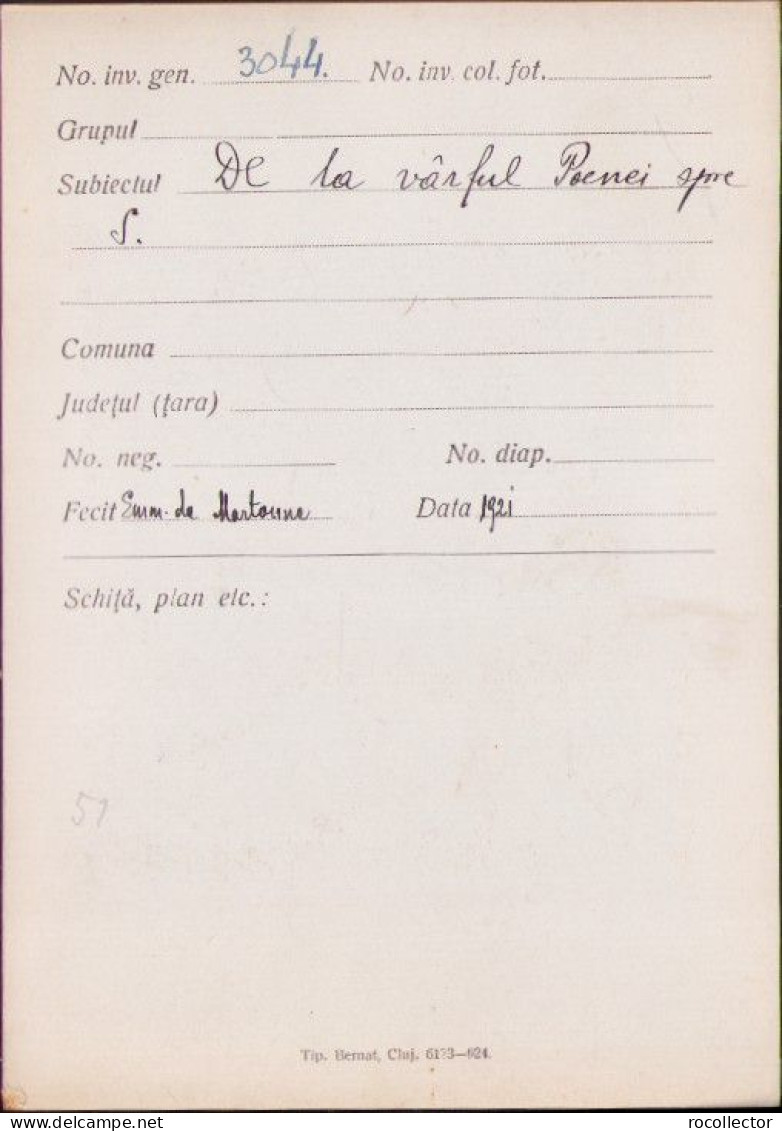 No. inv. gen. 3044. No. inv. col. fot.
Grupul
Subiectul De la vârful Poenei spre
S.
Comuna
Județul (țara)
No. neg. No. diap.
Fecit Emm. de Martonne Data 1921
Schiță, plan etc.:
51
Tip. Bernat, Cluj.
rocollector